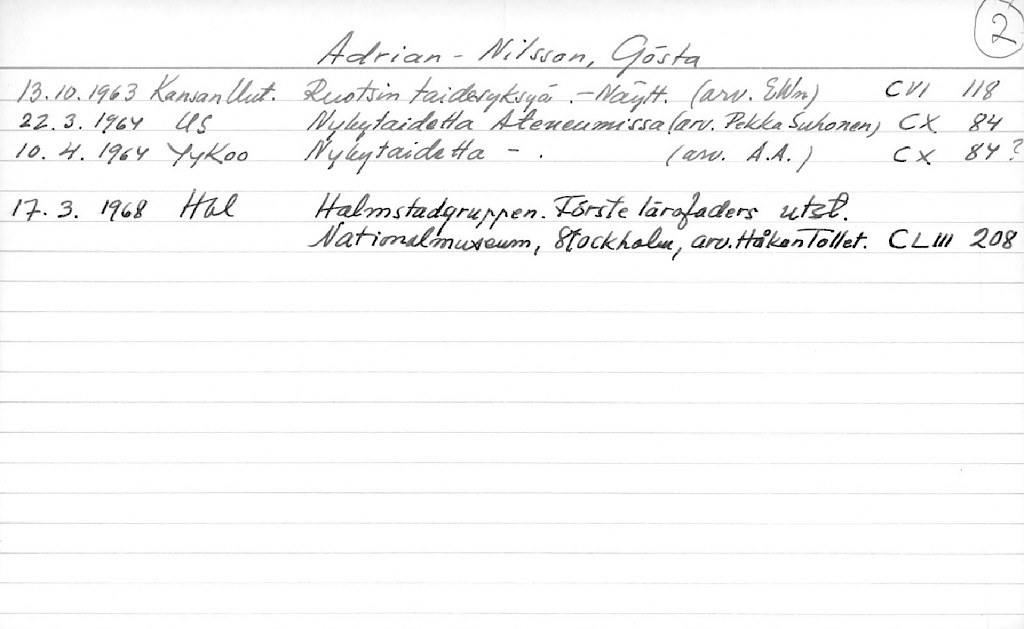 2
Adrian-Nilsson, Gösta
13.10.1963 Kansan Uut. Ruotsin taidesyksyä.-Näytt. (arv. EWm) CVI 118
22.3.1964 US Nykytaidetta Ateneumissa (arv. Pekka Suhonen) CX 84
10.4.1964 YyKoo Nykytaidetta - . (arv. A.A.) CX 84?
17.3.1968 Hbl Halmstadgruppen. Förste lärofaders utst.
Nationalmuseum, Stockholm, arv. Håkan Tollet. CLIII 208